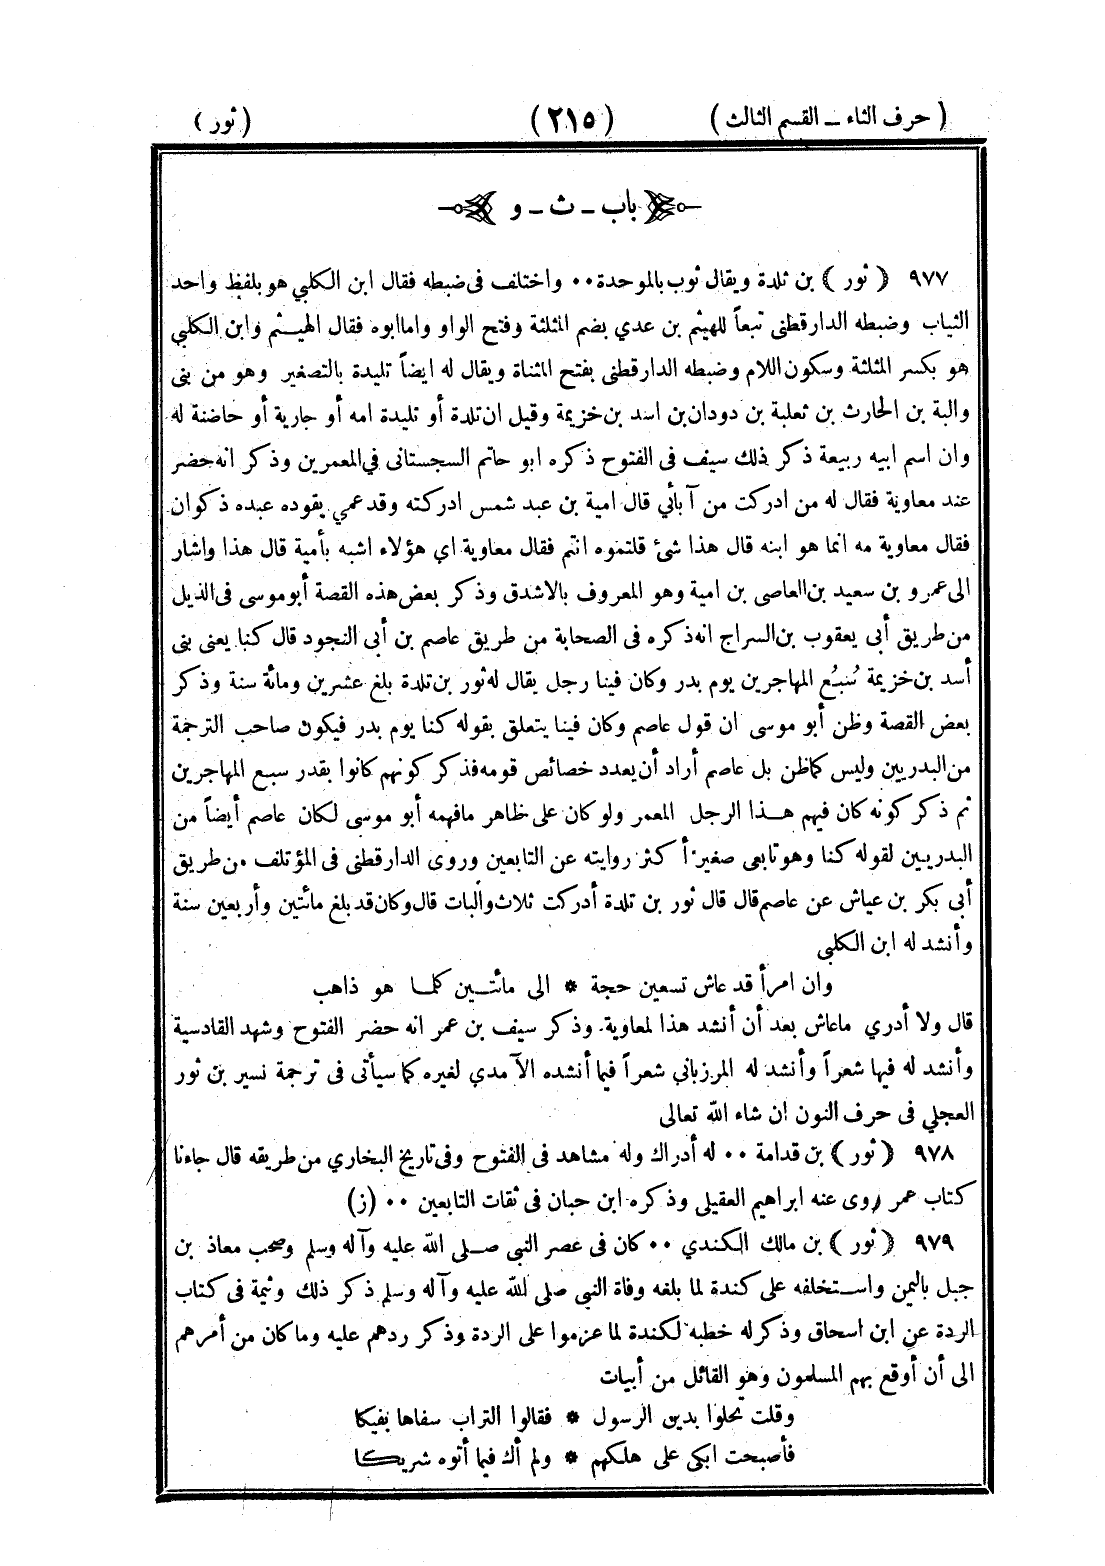 ( حرف الثاء ــ القسم الثالث ) ( ٢١٥ ) ( ثور )
باب ـ ث ـ و
٩٧٧ ( ثور ) بن تلدة ويقال ثوب بالموحدة ٠٠ واختلف فى ضبطه فقال ابن الكلبي هو بلفظ واحد
الثياب وضبطه الدارقطنى تبعاً للهيثم بن عدي بضم المثلثة وفتح الواو واما ابوه فقال الهيثم وابن الكلبي
هو بكسر المثلثة وسكون اللام وضبطه الدارقطنى بفتح المثناة ويقال له ايضاً تليدة بالتصغير وهو من بنى
والبة بن الحارث بن ثعلبة بن دودان بن اسد بن خزيمة وقيل ان تلدة أو تليدة امه أو جارية أو حاضنة له
وان اسم ابيه ربيعة ذكر ذلك سيف فى الفتوح ذكره ابو حاتم السجستانى في المعمرين وذكر انه حضر
عند معاوية فقال له من ادركت من آبأئي قال امية بن عبد شمس ادركته وقد عمي يقوده عبده ذكوان
فقال معاوية مه انما هو ابنه قال هذا شئ قلتموه انتم فقال معاوية اي هؤلاء اشبه بأمية قال هذا واشار
الى عمرو بن سعيد بن العاصى بن امية وهو المعروف بالاشدق وذكر بعض هذه القصة أبو موسى فى الذيل
من طريق أبى يعقوب بن السراج انه ذكره فى الصحابة من طريق عاصم بن أبى النجود قال كنا يعنى بنى
أسد بن خزيمة سُبُع المهاجرين يوم بدر وكان فينا رجل يقال له ثور بن تلدة بلغ عشرين ومائة سنة وذكر
بعض القصة وظن أبو موسى ان قول عاصم وكان فينا يتعلق بقوله كنا يوم بدر فيكون صاحب الترجمة
من البدريين وليس كما ظن بل عاصم أراد أن يعدد خصائص قومه فذكر كونهم كانوا بقدر سبع المهاجرين
ثم ذكر كونه كان فيهم هذا الرجل المعمر ولو كان على ظاهر مافهمه أبو موسى لكان عاصم أيضاً من
البدريين لقوله كنا وهو تابعى صغير أكثر روايته عن التابعين وروى الدارقطنى فى المؤتلف من طريق
أبى بكر بن عياش عن عاصم قال قال ثور بن تلدة أدركت ثلاث والبات قال وكان قد بلغ مائتين وأربعين سنة
وأنشد له ابن الكلبى
وان امرأ قد عاش تسعين حجة * الى مائتين كلما هو ذاهب
قال ولا أدري ماعاش بعد أن أنشد هذا لمعاوية. وذكر سيف بن عمر انه حضر الفتوح وشهد القادسية
وأنشد له فيها شعراً وأنشد له المرزباني شعراً فيما أنشده الآمدي لغيره كما سيأتى فى ترجمة نسير بن ثور
العجلي فى حرف النون ان شاء الله تعالى
٩٧٨ ( ثور ) بن قدامة ٠٠ له أدراك وله مشاهد فى الفتوح وفى تاريخ البخاري من طريقه قال جاءنا
كتاب عمر روى عنه ابراهيم العقيلى وذكره ابن حبان فى ثقات التابعين ٠٠ (ز)
٩٧٩ ( ثور ) بن مالك الكندي ٠٠ كان فى عصر النبي صلى الله عليه وآله وسلم وصحب معاذ بن
جبل باليمن واستخلفه على كندة لما بلغه وفاة النبي صلى الله عليه وآله وسلم ذكر ذلك وثيمة فى كتاب
الردة عن ابن اسحاق وذكر له خطبه لكندة لما عزموا على الردة وذكر ردهم عليه وما كان من أمرهم
الى أن أوقع بهم المسلمون وهو القائل من أبيات
وقلت تحلوا بدين الرسول * فقالوا التراب سفاها بفيكا
فأصبحت ابكى على هلكهم * ولم أك فيما أتوه شريكا